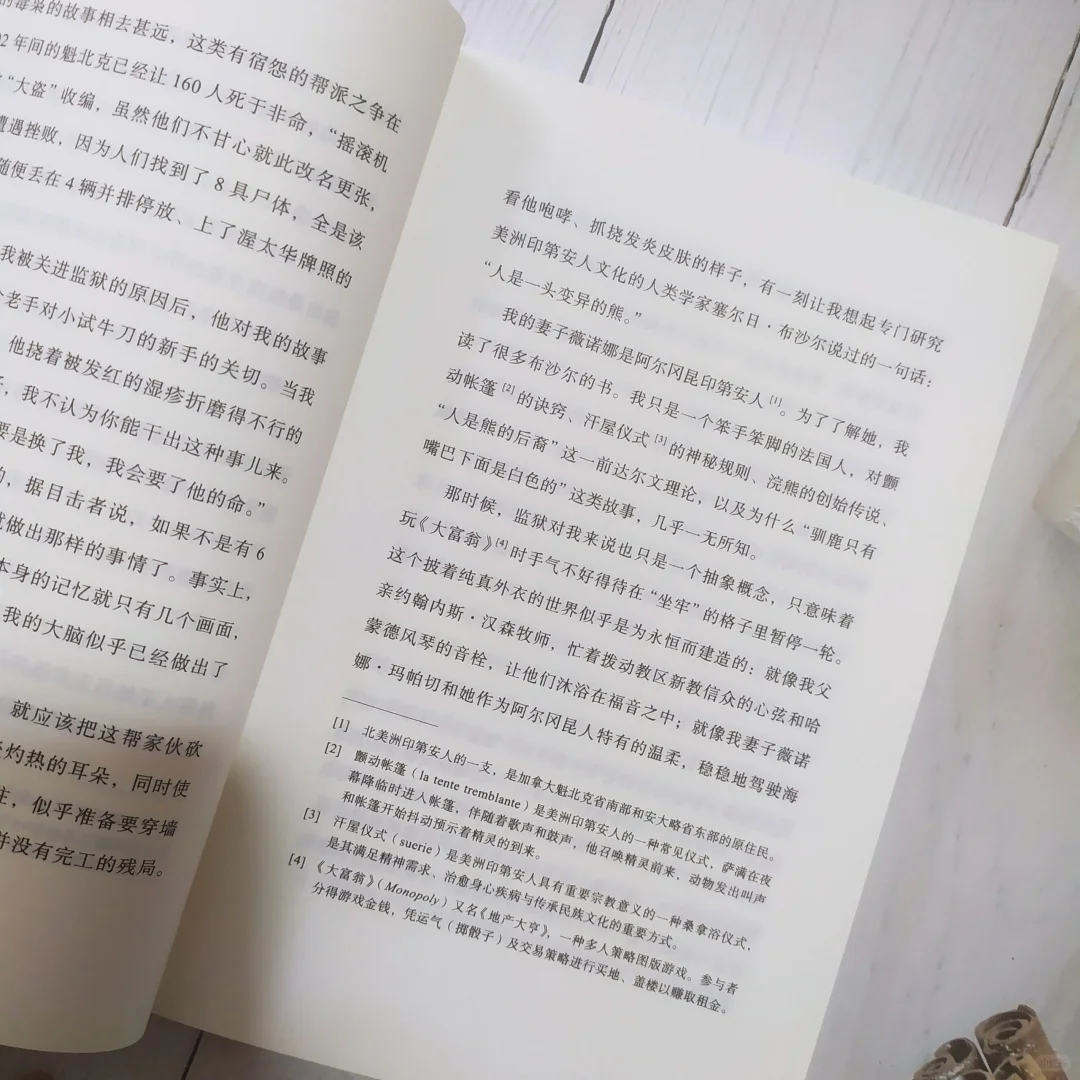 的毒枭的故事相去甚远，这类有宿怨的帮派之争在
年间的魁北克已经让 160 人死于非命，“摇滚机
“大盗”收编，虽然他们不甘心就此改名更张，
遭遇挫败，因为人们找到了 8 具尸体，全是该
随便丢在 4 辆并排停放、上了渥太华牌照的
我被关进监狱的原因后，他对我的故事
个老手对小试牛刀的新手的关切。当我
他挠着被发红的湿疹折磨得不行的
，我不认为你能干出这种事儿来。
要是换了我，我会要了他的命。”
的，据目击者说，如果不是有 6
就做出那样的事情了。事实上，
本身的记忆就只有几个画面，
我的大脑似乎已经做出了
就应该把这帮家伙砍
灼热的耳朵，同时使
住，似乎准备要穿墙
并没有完工的残局。
看他咆哮、抓挠发炎皮肤的样子，有一刻让我想起专门研究
美洲印第安人文化的人类学家塞尔日·布沙尔说过的一句话：
“人是一头变异的熊。”
我的妻子薇诺娜是阿尔冈昆印第安人[1]。为了了解她，我
读了很多布沙尔的书。我只是一个笨手笨脚的法国人，对颤
动帐篷[2]的诀窍、汗屋仪式[3]的神秘规则、浣熊的创始传说、
“人是熊的后裔”这一前达尔文理论，以及为什么“驯鹿只有
嘴巴下面是白色的”这类故事，几乎一无所知。
那时候，监狱对我来说也只是一个抽象概念，只意味着
玩《大富翁》[4]时手气不好得待在“坐牢”的格子里暂停一轮。
这个披着纯真外衣的世界似乎是为永恒而建造的：就像我父
亲约翰内斯·汉森牧师，忙着拨动教区新教信众的心弦和哈
蒙德风琴的音栓，让他们沐浴在福音之中；就像我妻子薇诺
娜·玛帕切和她作为阿尔冈昆人特有的温柔，稳稳地驾驶海
[1] 北美洲印第安人的一支，是加拿大魁北克省南部和安大略省东部的原住民。
[2] 颤动帐篷（la tente tremblante）是美洲印第安人的一种常见仪式，萨满在夜
幕降临时进入帐篷，伴随着歌声和鼓声，他召唤精灵前来，动物发出叫声
和帐篷开始抖动预示着精灵的到来。
[3] 汗屋仪式（suerie）是美洲印第安人具有重要宗教意义的一种桑拿浴仪式，
是其满足精神需求、治愈身心疾病与传承民族文化的重要方式。
[4] 《大富翁》（Monopoly）又名《地产大亨》，一种多人策略图版游戏。参与者
分得游戏金钱，凭运气（掷骰子）及交易策略进行买地、盖楼以赚取租金。